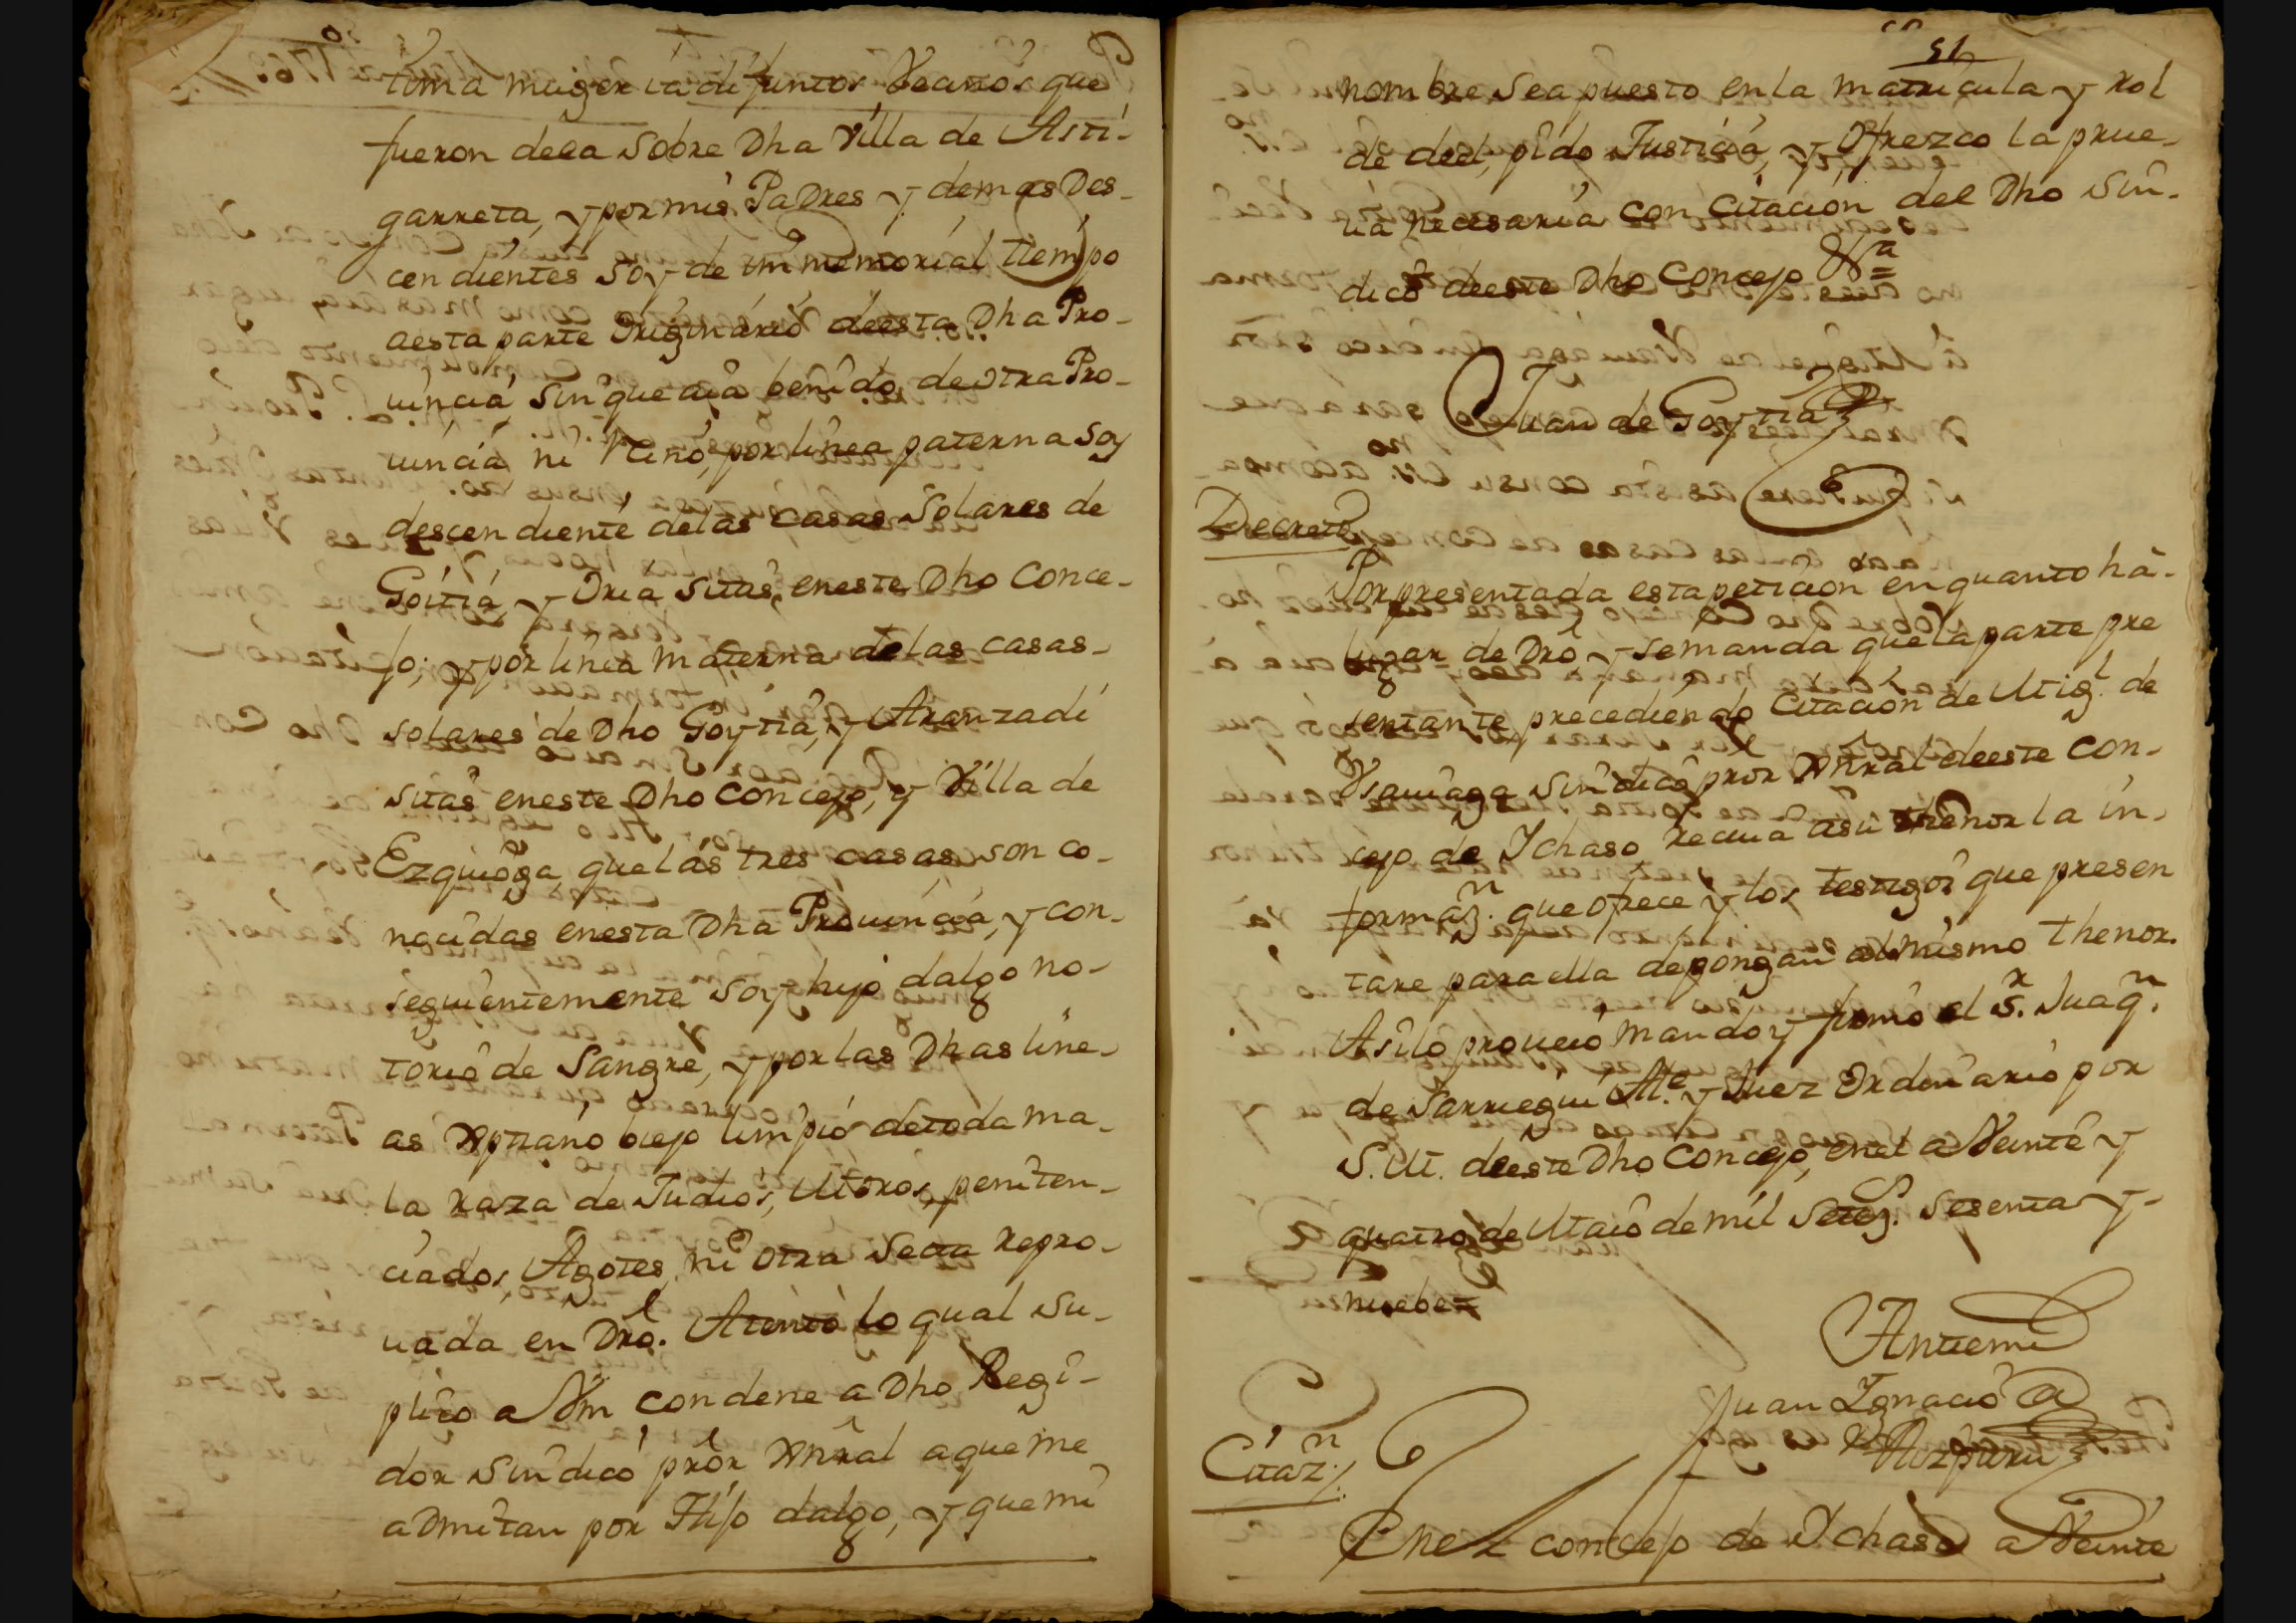 tima muger ia difuntos, Vecinos que
fueron de ea sobre Dha Villa de Asti-
garreta, y por mis Padres y demas Des-
cendientes soy de immemorial tiempo
aesta parte Originario deesta Dha Pro-
uincia, sin que aia benido de otra Pro-
uincia ni Reino, por linea paterna soy
descendiente delas casas Solares de
Goitia, y Oria sitas eneste Dho Conce-
jo; y por linea materna delas casas-
solares de Dho Goytia, y Aranzadi
sitas eneste Dho Concejo, y Villa de
Ezquioga, que las tres casas son co-
nocidas enesta Dha Prouincia, y con-
seguientemente soy hijo dalgo no-
torio de Sangre, y por las Dhas line-
as Xptiano biejo limpio detoda ma-
la raza de Judios, Moros, peniten-
ciados, Agotes, ni otra Secta repro-
uada en Dro. Atento lo qual su-
plico a Vm condene a Dho Regi-
dor sindico pror Xnral aqueme
admitan por Hijo dalgo, y que mi
51
nombre sea puesto enla matricula y rol
de del, pido Justicia, y Ofrezco la prue-
ua necesaria con Citacion del Dho Sin-
dico deeste Dho Concejo Va =
Juan de Goytia
Decreto
Por presentada esta peticion en quanto há-
lugar de Dro, y semanda que la parte pre
sentante precediendo Citacion de Migl. de
Vsauiaga sindico pror Xnral deeste Con-
cejo de Ichaso reciua asu thenor la in-
formazn. que ofrece y los testigos que presen
tare para ella depongan al mismo thenor.
Asilo proueió mandó y firmó el Sr. Juaqn.
de Sarriegui Alte. y Juez Ordinario por
S. M. deeste Dho Concejo, enel a Veinte y
quatro de Maio de mil Setez. sesenta y-
nuebe=
Antemi
Juan Ignacio de
Aizpuru
Citazn.
Enel concejo de Ychaso a Veinte